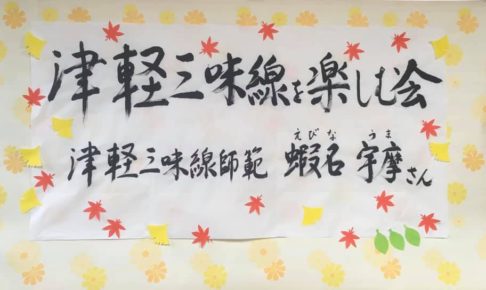 津軽三味線を楽しむ会
えびな うま
津軽三味線師範 蝦名 宇摩さん